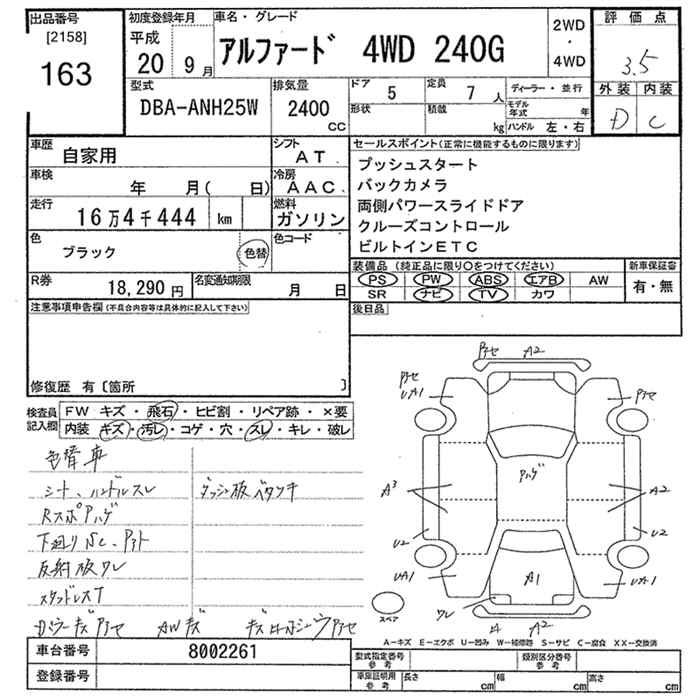 出品番号 初度登録年月 車名・グレード 評価点
[2158] 平成
163 20 年 9 月 アルファード 4WD 240G 2WD・4WD 3.5
型式 排気量 ドア 5 定員 7 人 ディーラー・並行 外装 内装
DBA-ANH25W 2400 cc 形状 積載 kg モデル年式 年 D C
ハンドル 左・右
車歴 自家用 シフト AT
セールスポイント(正常に機能するものに限ります)
車検 年 月( 日) 冷房 AAC
プッシュスタート
バックカメラ
走行 16万4千444 km 燃料 ガソリン
両側パワースライドドア
クルーズコントロール
色 ブラック 色替 色コード
ビルトインETC
装備品(純正品に限り○をつけてください) 新車保証書
R券 18,290円 名変通知期限 月 日
PS PW ABS エアB AW 有・無
SR ナビ TV カワ
注意事項申告欄(不具合内容等は具体的に記入して下さい) 後日品
修復歴 有〔箇所 〕
検査員記入欄 FW キズ・飛石・ヒビ割・リペア跡・×要
内装 キズ・汚レ・コゲ・穴・スレ・キレ・破レ
色替車
シート、ハンドルスレ ダッシュ板ベタツキ
RスポPハゲ
下廻りSC、Pアト
反射板ワレ
スタッドレスT
AWキズ
Pアセ A2
Pアセ UA1 Pアセ
Pハゲ
A3 A2
U2 U2
UA1 A1 UA1
ワレ A2
スペア
A-キズ E-エクボ U-凹み W-補修跡 S-サビ C-腐食 XX-交換済
車台番号 8002261 型式指定番号 参考 類別区分番号 参考
登録番号 車庫証明用 参考 長さ cm 幅 cm 高さ cm